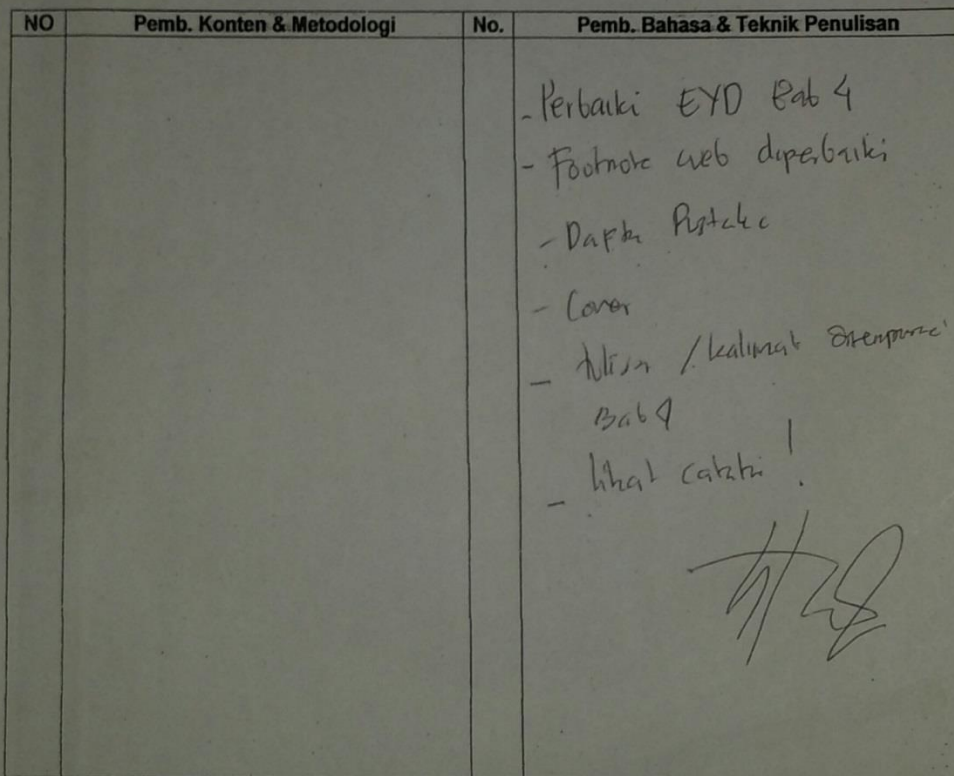 NO Pemb. Konten & Metodologi No. Pemb. Bahasa & Teknik Penulisan
- Perbaiki EYD Bab 4
- Footnote web diperbaiki
- Daftar Pustaka
- Cover
- tulisan / kalimat
Bab 4
- lihat catatan !